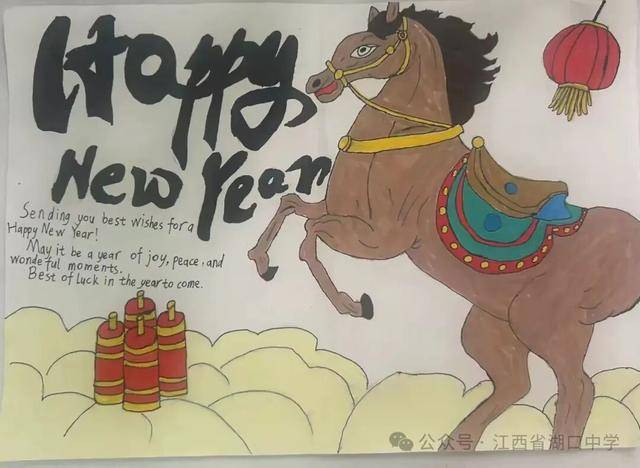 Happy
New Year
Sending you best wishes for a
Happy New Year!
May it be a year of joy, peace, and
wondeful moments.
Best of luck in the year to come.
公众号·江西省湖口中学